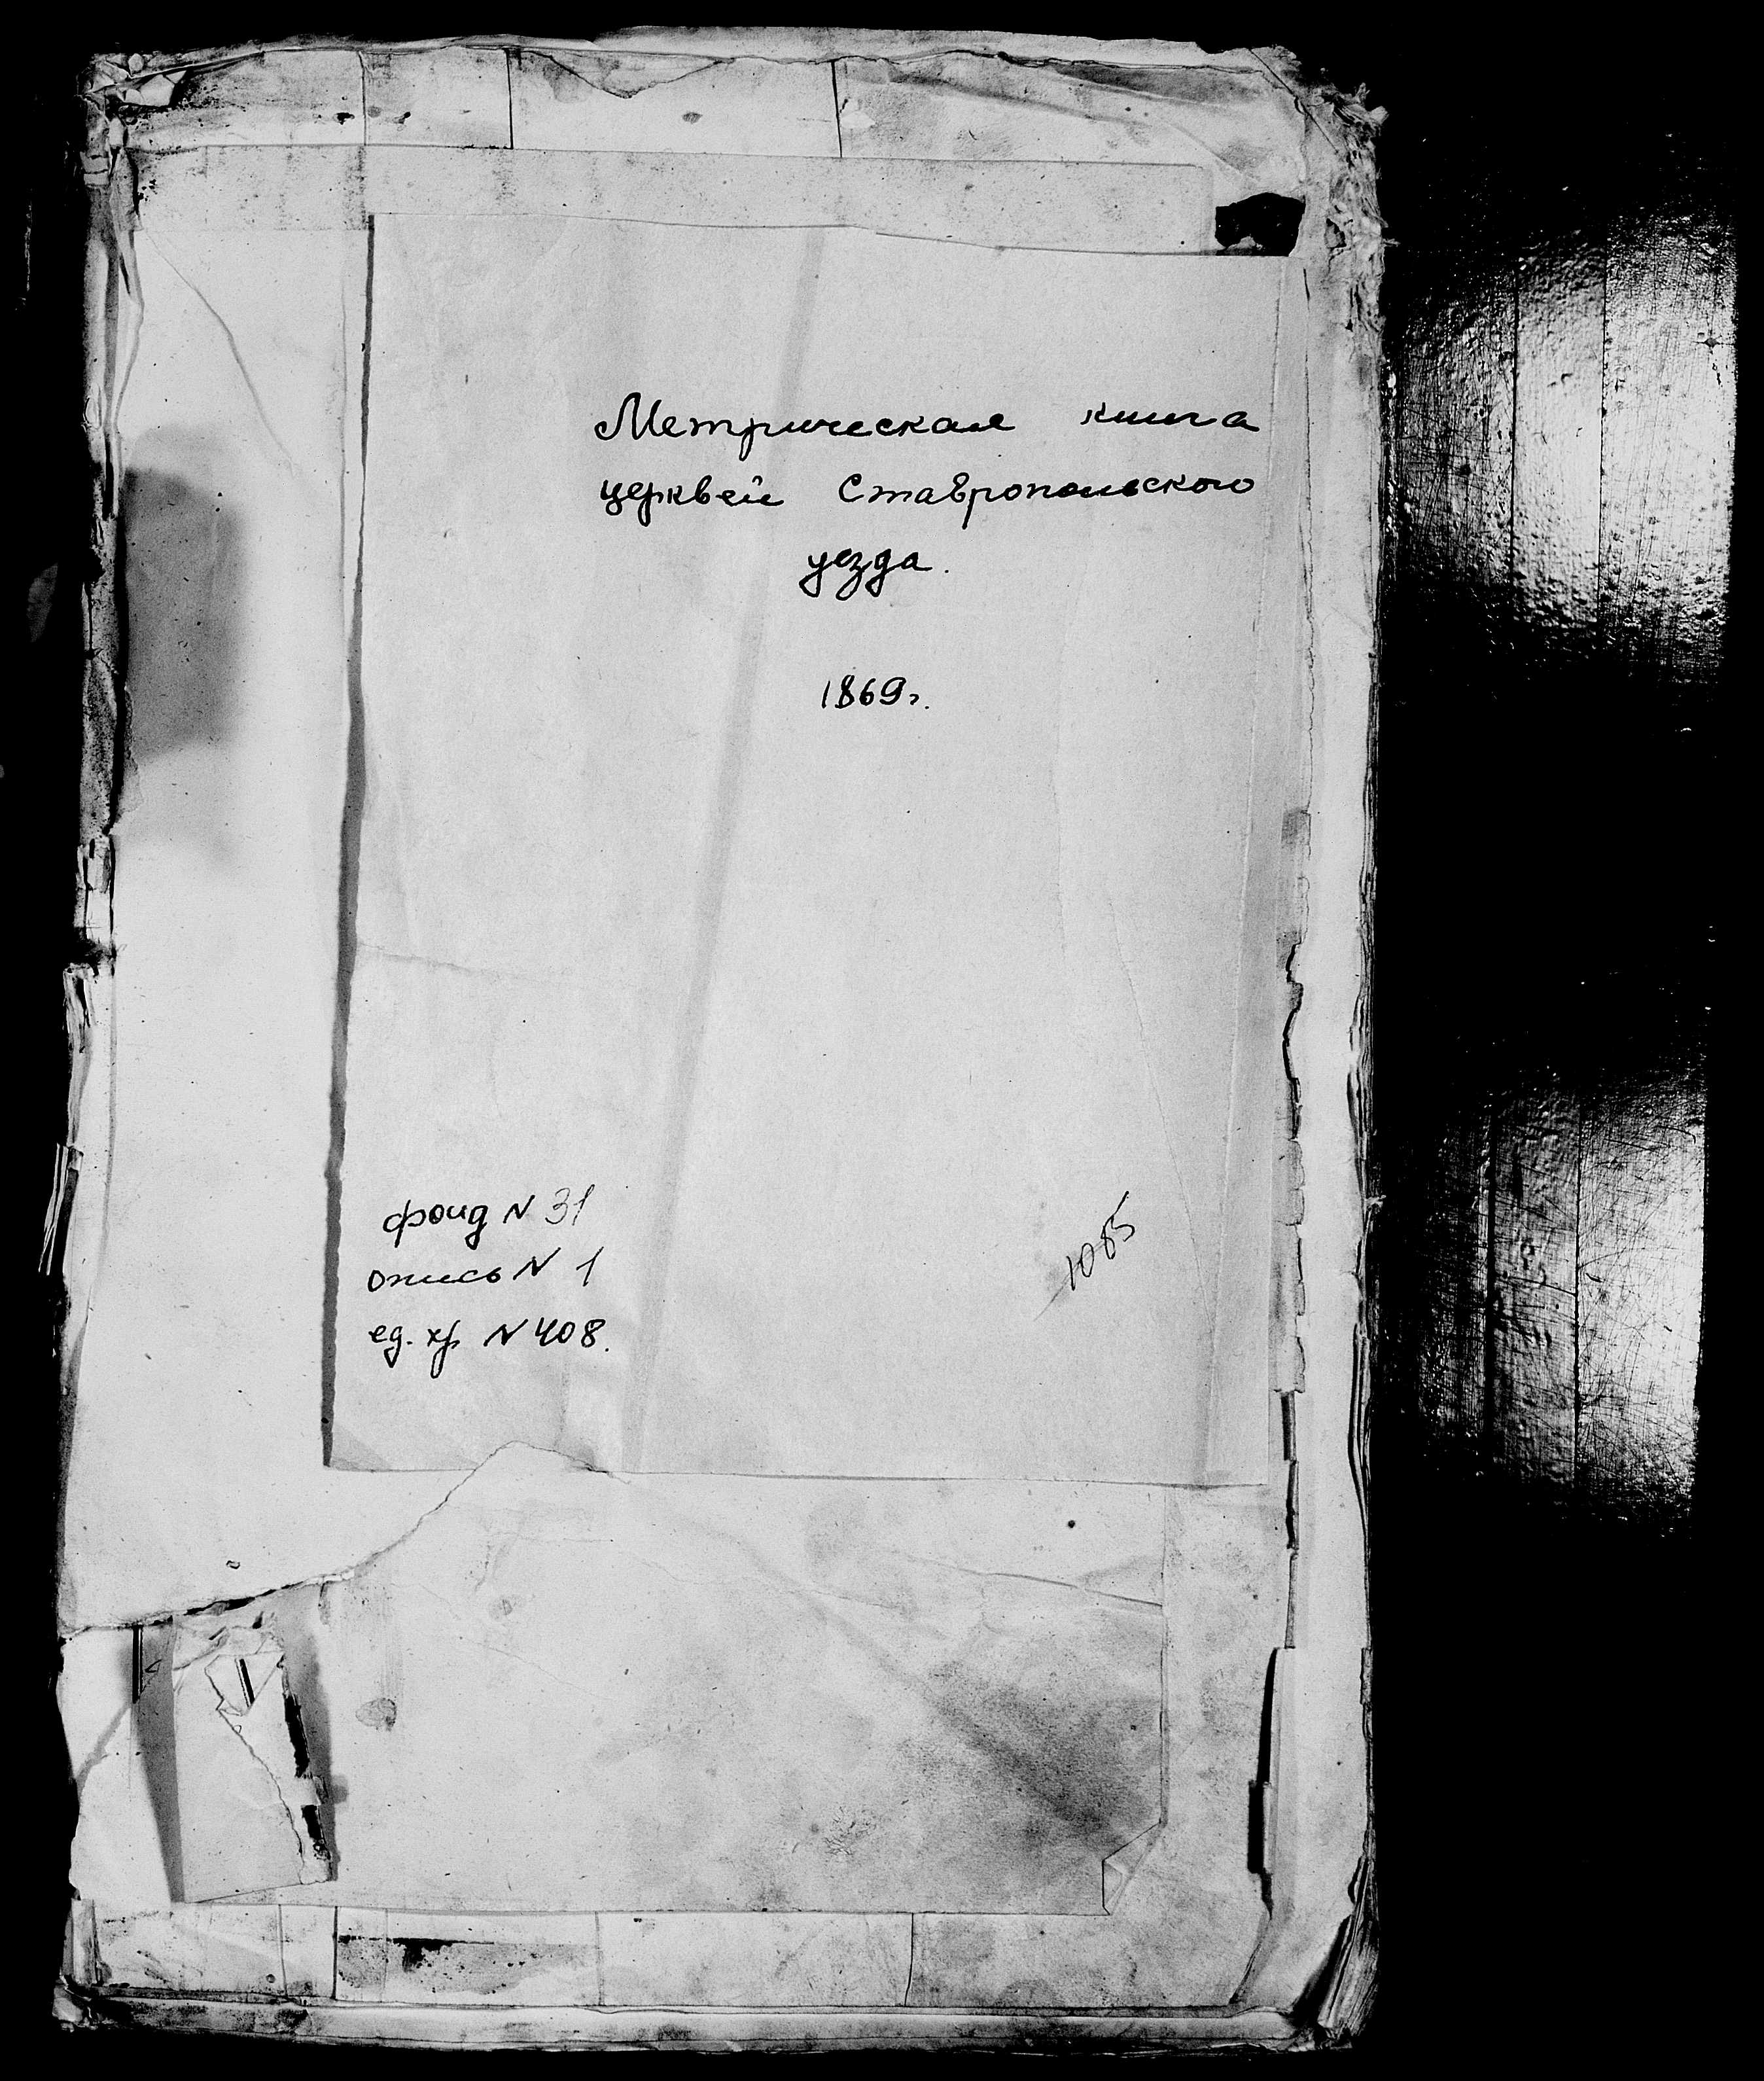 Метрическая книга
церквей Ставропольского
уезда.
1869г.
фонд N 31
опись N 1
ед. хр. N 408.
1085